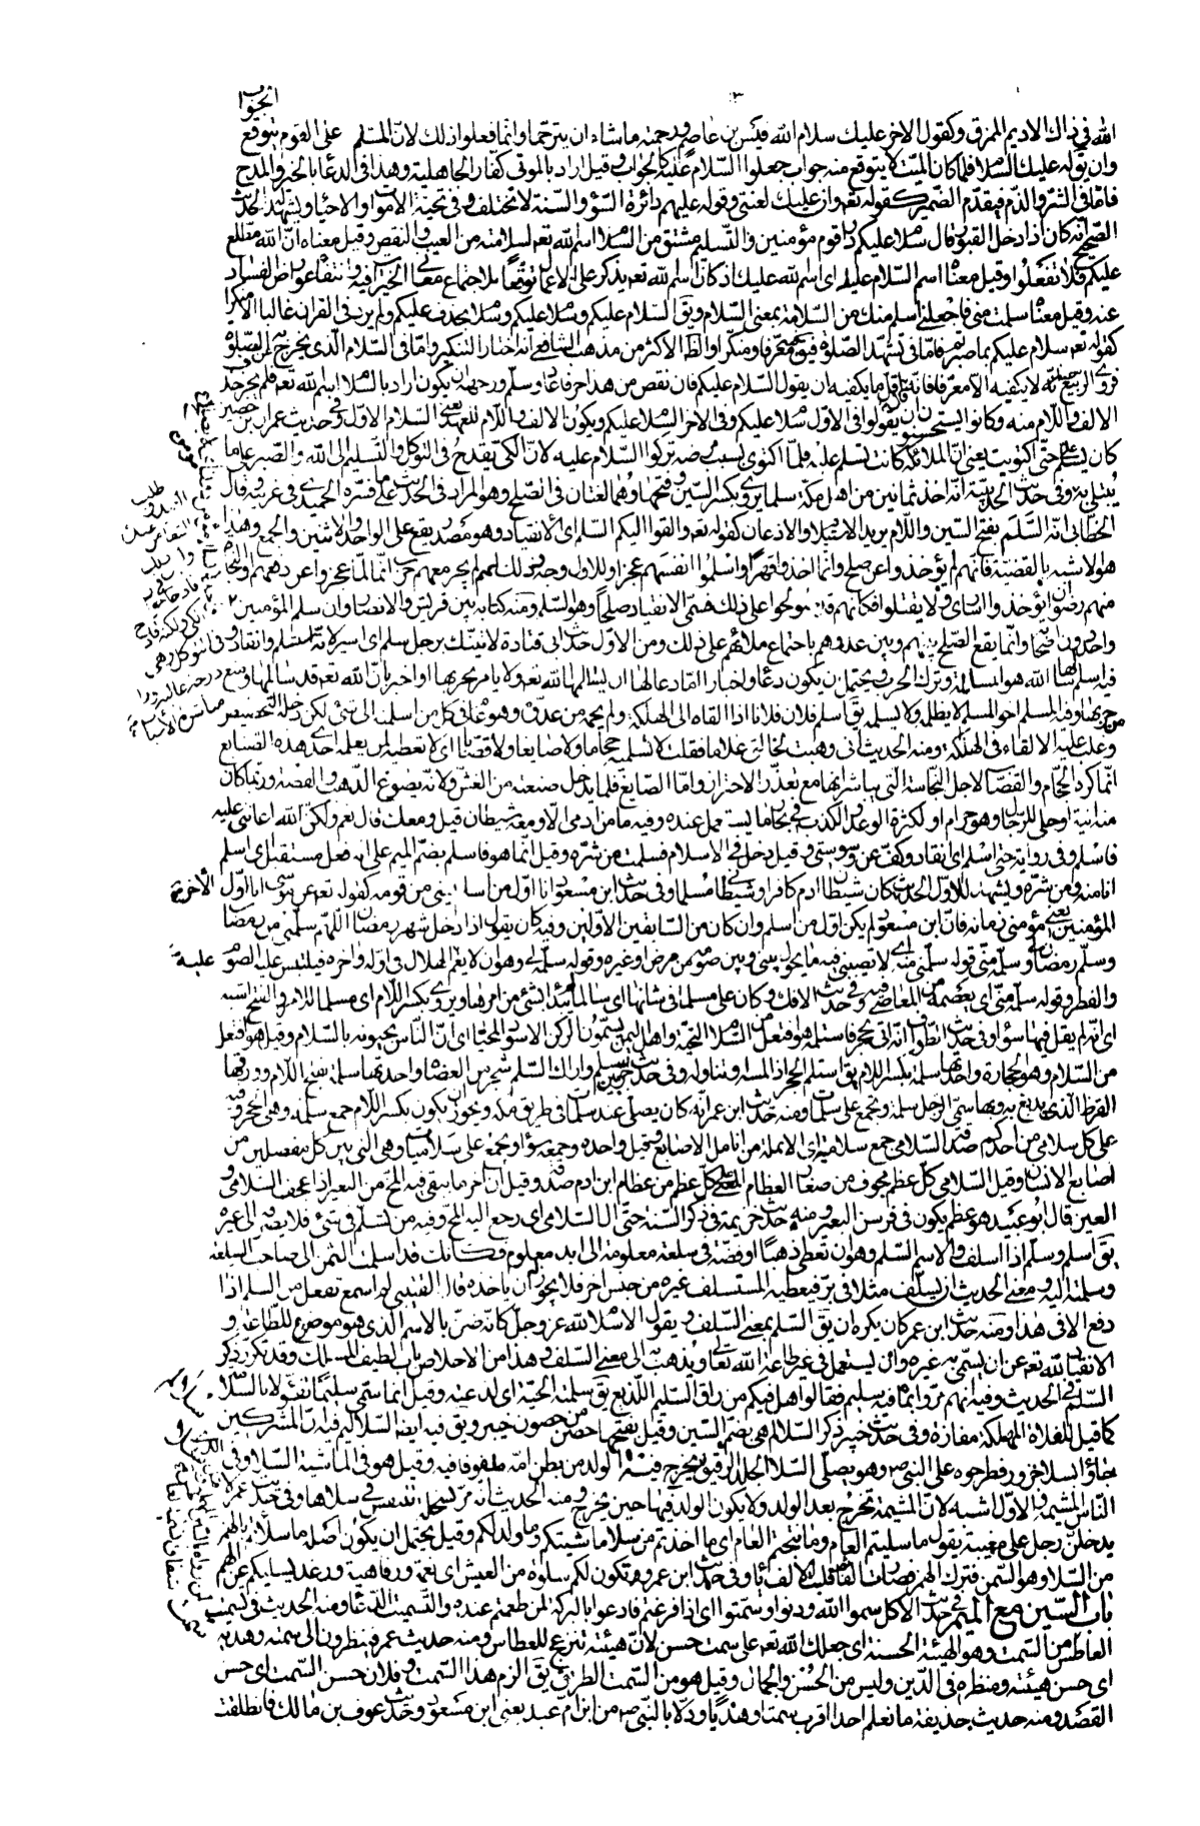 الجواب
الله في ذاك الاديم الممزق وكقول الاخر عليك سلام الله قيس بن عاصم ورحمته ماشاء ان يترحما وانما فعلوا ذلك لان المسلم على القوم يتوقع
وان يق له عليك السلام فلما كان الميت لا يتوقع منه جواب جعلوا السلام عليه كالجواب وقيل اراد بالموتى كفار الجاهلية وهذا في الدعا بالخير والمدح
فاما في الشر والذم فيقدم الضمير كقوله تعه وان عليك لعنتي وقوله عليهم دائرة السوء والسنة لا تختلف في تحية الاموات والاحياء ويشهد له الحديث
الصحيح انه كان اذا دخل القبور قال سلام عليكم دار قوم مؤمنين والتسليم مشتق من السلام اسم الله تعه لسلامته من العيب والنقص وقيل معناه ان الله مطلع
عليكم فلا تغفلوا وقيل معناه اسم السلام عليك اى اسم الله عليك اذ كان اسم الله تعه يذكر على الاعمال توقعا لاجتماع معاني الخيرات فيه وانتفاء عوارض الفساد
عنه وقيل معناه سلمت مني فاجعلني اسلم منك من السلامة بمعنى السلام ويق السلام عليكم وسلام عليكم وسلام بحذف عليكم ولم يرد في القران غالبا الا منكرا
كقوله تعه سلام عليكم بما صبرتم فاما في تشهد الصلوة فيق فيه معرفا ومنكرا والظاهر الاكثر من مذهب الشافعي انه اختار التنكير واما في السلام الذي يخرج به من الصلوة
فروى الربيع عنه انه لا يكفيه الا معرفا فانه قال اقل ما يكفيه ان يقول السلام عليكم فان نقص من هذا حرفا عاد وسلم ووجهه ان يكون اراد بالسلام اسم الله تعه فلم يجز حذف
الالف واللام منه وكانوا يستحسنون ان يقولوا في الاول سلام عليكم وفي الاخر السلام عليكم ويكون الالف واللام للعهد يعنى السلام الاول وفي حديث عمران بن حصين
كان يسلم علي حتى اكتويت يعنى ان الملائكة كانت تسلم عليه فلما اكتوى بسبب مرضه تركوا السلام عليه لان الكى يقدح في التوكل والتسليم الى الله والصبر على ما
يبتلى به وفي حديث الحديبية انه اخذ ثمانين من اهل مكة سلما يروى بكسر السين وفتحها وهما لغتان في الصلح وهو المراد في الحديث على ما فسره الحميدي في غريبه وقال
الخطابي انه السلم بفتح السين واللام يريد الاستسلام والاذعان كقوله تعه والقوا اليكم السلم اى الانقياد وهو مصدر يقع على الواحد والاثنين والجمع وهذا
هو الاشبه بالقضية فانهم لم يؤخذوا عن صلح وانما اخذوا قهرا واسلموا انفسهم عجزا وللاول وجه وذلك انهم لم يجر معهم حرب انما لما عجزوا عن دفعهم او النجاة
منهم رضوا ان يؤخذوا اسارى ولا يقتلوا فكانهم قد صولحوا على ذلك فسمى الانقياد صلحا وهو السلم ومنه كتابه بين قريش والانصار وان سلم المؤمنين
واحد وانما يقع الصلح بينهم وبين عدوهم باجتماع ملائهم على ذلك ومن الاول حديث ابى قتادة لاتينك برجل سلم اى اسير لانه استسلم وانقاد وفي
فيه اسلم سالمها الله هو من المسالمة وترك الحرب ويحتمل ان يكون دعاء واخبارا اما دعاء لها ان يسالمها الله تعه ولا يامر بحربها او اخبر بان الله تعه قد سالمها ومنع من
حربها وفيه المسلم اخو المسلم لا يظلمه ولا يسلمه يق اسلم فلان فلانا اذا القاه الى الهلكة ولم يحمه من عدوه وهو عام في كل من اسلمته الى شئ لكن دخله التخصيص
وغلب عليه الالقاء في الهلكة ومنه الحديث انى وهبت لخالتى غلاما فقلت لا تسلميه حجاما ولا صايغا ولا قصابا اى لا تعطيه لمن يعلمه احدى هذه الصنايع
انما كره الحجام والقصاب لاجل النجاسة التى يباشرانها مع تعذر الاحتراز واما الصايغ فلما يدخل صنعته من الغش ولانه يصوغ الذهب والفضة وربما كان
من انية او حلى للرجال وهو حرام او لكثرة الوعد والكذب في نجاز ما يستعمل عنده وفيه ما من ادمي الا ومعه شيطان قيل ومعك قال نعم ولكن الله اعانني عليه
فاسلم وفي رواية حتى اسلم اى انقاد وكف عن وسوستى وقيل دخل في الاسلام فسلمت من شره وقيل انما هو فاسلم بضم الميم على انه فعل مستقبل اى اسلم
انا منه ومن شره ويشهد للاول الحديث كان شيطان ادم كافرا وشيطاني مسلما وفي حديث ابن مسعود انا اول من اسلم يعنى من قومه كقوله تعه عن موسى انا اول
المؤمنين يعنى مؤمني زمانه فان ابن مسعود لم يكن اول من اسلم وان كان من السابقين الاولين وفيه كان يقول اذا دخل شهر رمضان اللهم سلمني من رمضان
وسلم رمضان لي وسلمه مني قوله سلمني منه اى لا تصيبني فيه ما يحول بيني وبين صومه من مرض وغيره وقوله سلمه لي وهو ان لا يغم الهلال في اوله واخره فيلتبس عليه الصوم
والفطر وقوله سلمه مني اى يعصمه من المعاصي فيه وفي حديث الافك وكان علي مسلما في شانها اى سالما لم يبد بشئ من امرها ويروى بكسر اللام اى مسلما للامر والفتح اشبه
اى انه لم يقل فيها سوءا وفي حديث الطواف انه اتى الحجر فاستلمه هو افتعل من السلام التحية واهل اليمن يسمون الركن الاسود المحيا اى ان الناس يحيونه بالسلام وقيل هو افتعل
من السلام وهو الحجارة واحدتها سلمة بكسر اللام يق استلم الحجر اذا لمسه وتناوله وفي حديث جرير بين سلم واراك السلم شجر من العضاه واحدتها سلمة بفتح اللام وورقها
القرظ الذي يدبغ به وبها سمى الرجل سلمة وتجمع على سلمات ومنه حديث ابن عمر انه كان يصلى عند سلمات في طريق مكة ويجوز ان يكون بكسر اللام جمع سلمة وهي الحجر وفيه
على كل سلامى من احدكم صدقة السلامى جمع سلامية وهى الانملة من انامل الاصابع وقيل واحده وجمعه سواء ويجمع على سلاميات وهى التى بين كل مفصلين من
اصابع الانسان وقيل السلامى كل عظم مجوف من صغار العظام المعنى على كل عظم من عظام ابن ادم صدقة وقيل ان اخر ما يبقى فيه المخ من البعير اذا عجف السلامى و
العين قال ابو عبيد هو عظم يكون في فرسن البعير ومنه حديث خزيمة في ذكر السنة حتى ال السلامى اى رجع اليه المخ وفيه من تسلم في شئ فلا يصرفه الى غيره
يق اسلم وسلم اذا اسلف والاسم السلم وهو ان تعطى ذهبا او فضة في سلعة معلومة الى امد معلوم فكانك قد اسلمت الثمن الى صاحب السلعة
وسلمته اليه ومعنى الحديث ان يسلف مثلا في بر فيعطيه المستسلف غيره من جنس اخر فلا يجوز له ان ياخذه قال القتيبي لم اسمع تفعل من السلم اذا
دفع الا في هذا ومنه حديث ابن عمر كان يكره ان يق السلم بمعنى السلف ويقول الاسلام لله عز وجل كانه ضن بالاسم الذي هو موضوع للطاعة و
الانقياد لله تعه عن ان يسمى به غيره وان يستعمل في غير طاعة الله تعالى ويذهب به الى معنى السلف وهذا من الاخلاص باب لطيف المسلك وقد تكرر ذكر
السلم في الحديث وفيه انهم مروا بماء فيه سليم فقالوا هل فيكم من راق السليم اللديغ يق سلمته الحية اى لدغته وقيل انما سمى سليما تفؤلا بالسلامة
كما قيل للفلاة المهلكة مفازة وفي حديث خيبر ذكر السلالم هى بضم السين وقيل بفتحها حصن من حصون خيبر ويق فيه ايضا السلاليم فيه ان المشركين
جاؤا بسلا جزور فطرحوه على النبي ص وهو يصلى السلا الجلد الرقيق الذي يخرج فيه الولد من بطن امه ملفوفا فيه وقيل هو في الماشية السلا وفي
الناس المشيمة والاول اشبه لان المشيمة تخرج بعد الولد ولا يكون الولد فيها حين يخرج ومنه الحديث انه مر بسخلة تتنفس في سلاها وفي حديث عمر لا
يدخلن رجل على مغيبة يقول ما سليتم العام وما نتجتم العام اى ما اخذتم من سلا ماشيتكم وما ولد لكم وقيل يحتمل ان يكون اصله ما سلاتم بالهمز
من السلاء وهو السمن فترك الهمز فصارت الفا ثم قلبت الالف ياء وفي حديث ابن عمرو وتكون لكم سلوة من العيش اى نعمة ورفاهية ورغد يسليكم عن الهم
باب السين مع الميم في حديث الاكل سموا الله ودنوا وسمتوا اى اذا فرغتم فادعوا بالبركة لمن طعمتم عنده والتسميت الدعاء ومنه الحديث في تسميت
العاطس من السمت وهو الهيئة الحسنة اى جعلك الله تعه على سمت حسن لان هيئته تنزعج للعطاس ومنه حديث عمر فينظرون الى سمته وهديه
اى حسن هيئته ومنظره في الدين وليس من الحسن والجمال وقيل هو من السمت الطريق يق الزم هذا السمت وفلان حسن السمت اى حسن
القصد ومنه حديث حذيفة ما نعلم احدا اقرب سمتا وهديا ودلا بالنبي ص من ابن ام عبد يعنى ابن مسعود وحديث عوف بن مالك فانطلقت